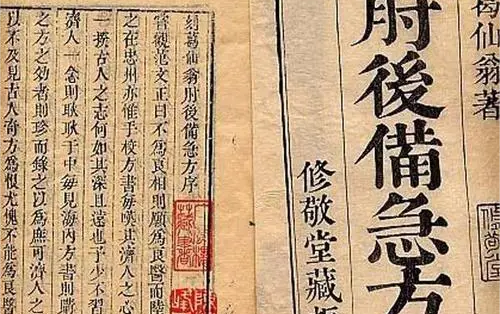 葛仙翁著
肘後備急方
修敬堂藏
刻葛仙翁肘後備急方序
嘗觀范文正曰不爲良相則願爲良醫而陸
之在忠州亦惟手校方書每嘆其濟人之心
一揆古人之志何如其深且遠也予少不習
濟人一念則耿耿于中每見海內方書則
之方之効者則珍而錄之以爲庶可濟人之
以不及見古人奇方爲恨尤愧不能爲良醫